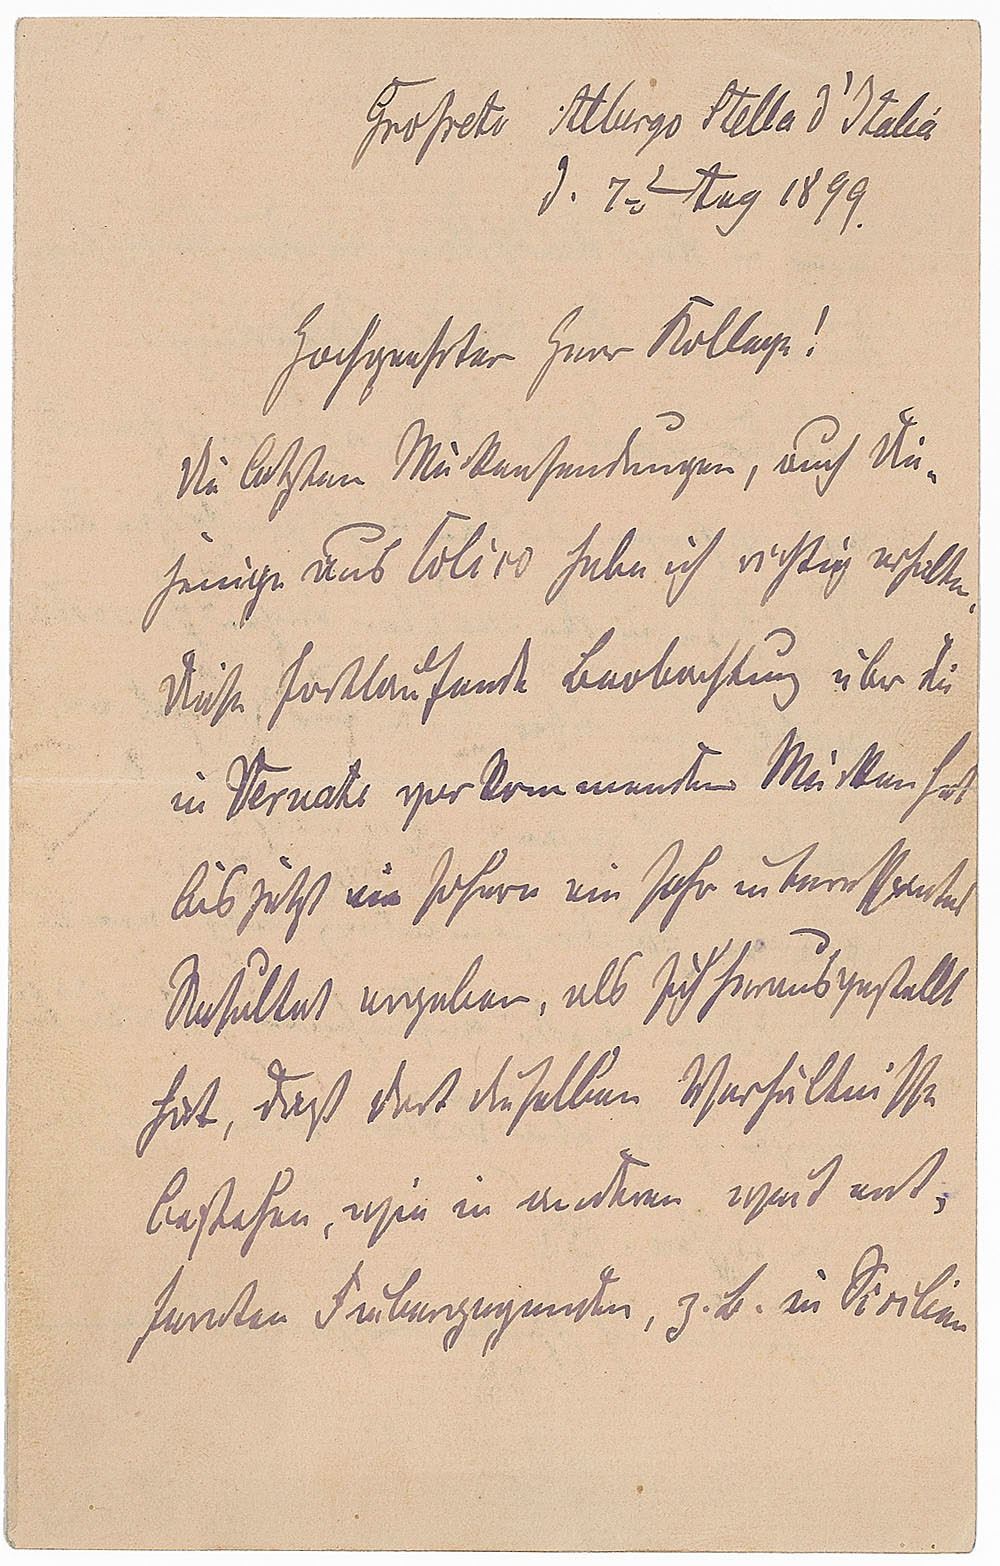 Grosseto Albergo Stella d'Italia
d. 7t Aug 1899.
Hochgeehrter Herr Kollege!
Die letzten Mückensendungen, auch die-
jenige aus Colico habe ich richtig erhalten.
Diese fortlaufende Beobachtung über die
in Vernate vorkommenden Mücken hat
bis jetzt ein sofern ein sehr interessantes
Resultat ergeben, als sich herausgestellt
hat, dass dort dieselben Verhältnisse
bestehen, wie in anderen weit ent-
fernten Fiebergegenden, z. B. in Sicilien